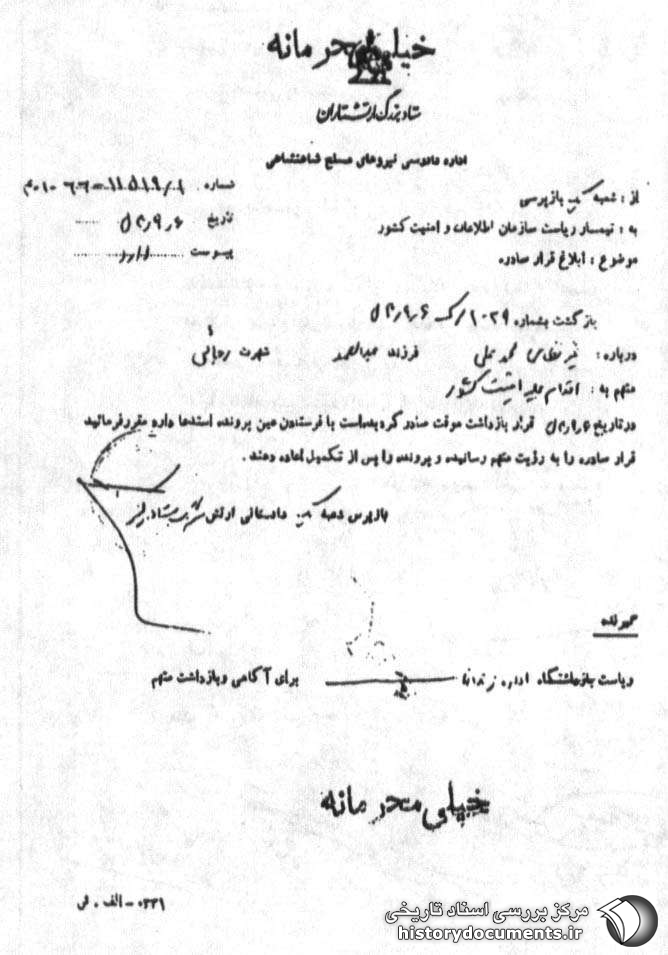 خیلی محرمانه
ستاد بزرگ ارتشتاران
اداره دادرسی نیروهای مسلح شاهنشاهی
از : شعبه یک بازپرسی
شماره
به : تیمسار ریاست سازمان اطلاعات و امنیت کشور
تاریخ
موضوع : ابلاغ قرار صادره
پیوست
بازگشت بشماره
درباره : غیر نظامی محمد علی فرزند عبدالصمد شهرت
متهم به : اقدام علیه امنیت کشور
در تاریخ قرار بازداشت موقت صادر گردیده است با فرستادن عین پرونده استدعا دارد مقرر فرمائید
قرار صادره را به رؤیت متهم رسانیده و پرونده را پس از تکمیل اعاده دهند .
بازپرس شعبه یک دادستانی ارتش
گیرنده
ریاست بازداشتگاه اداره زندانها برای آگاهی و بازداشت متهم
خیلی محرمانه
۰۳۳۱ - الف . فی
مرکز بررسی اسناد تاریخی
historydocuments.ir